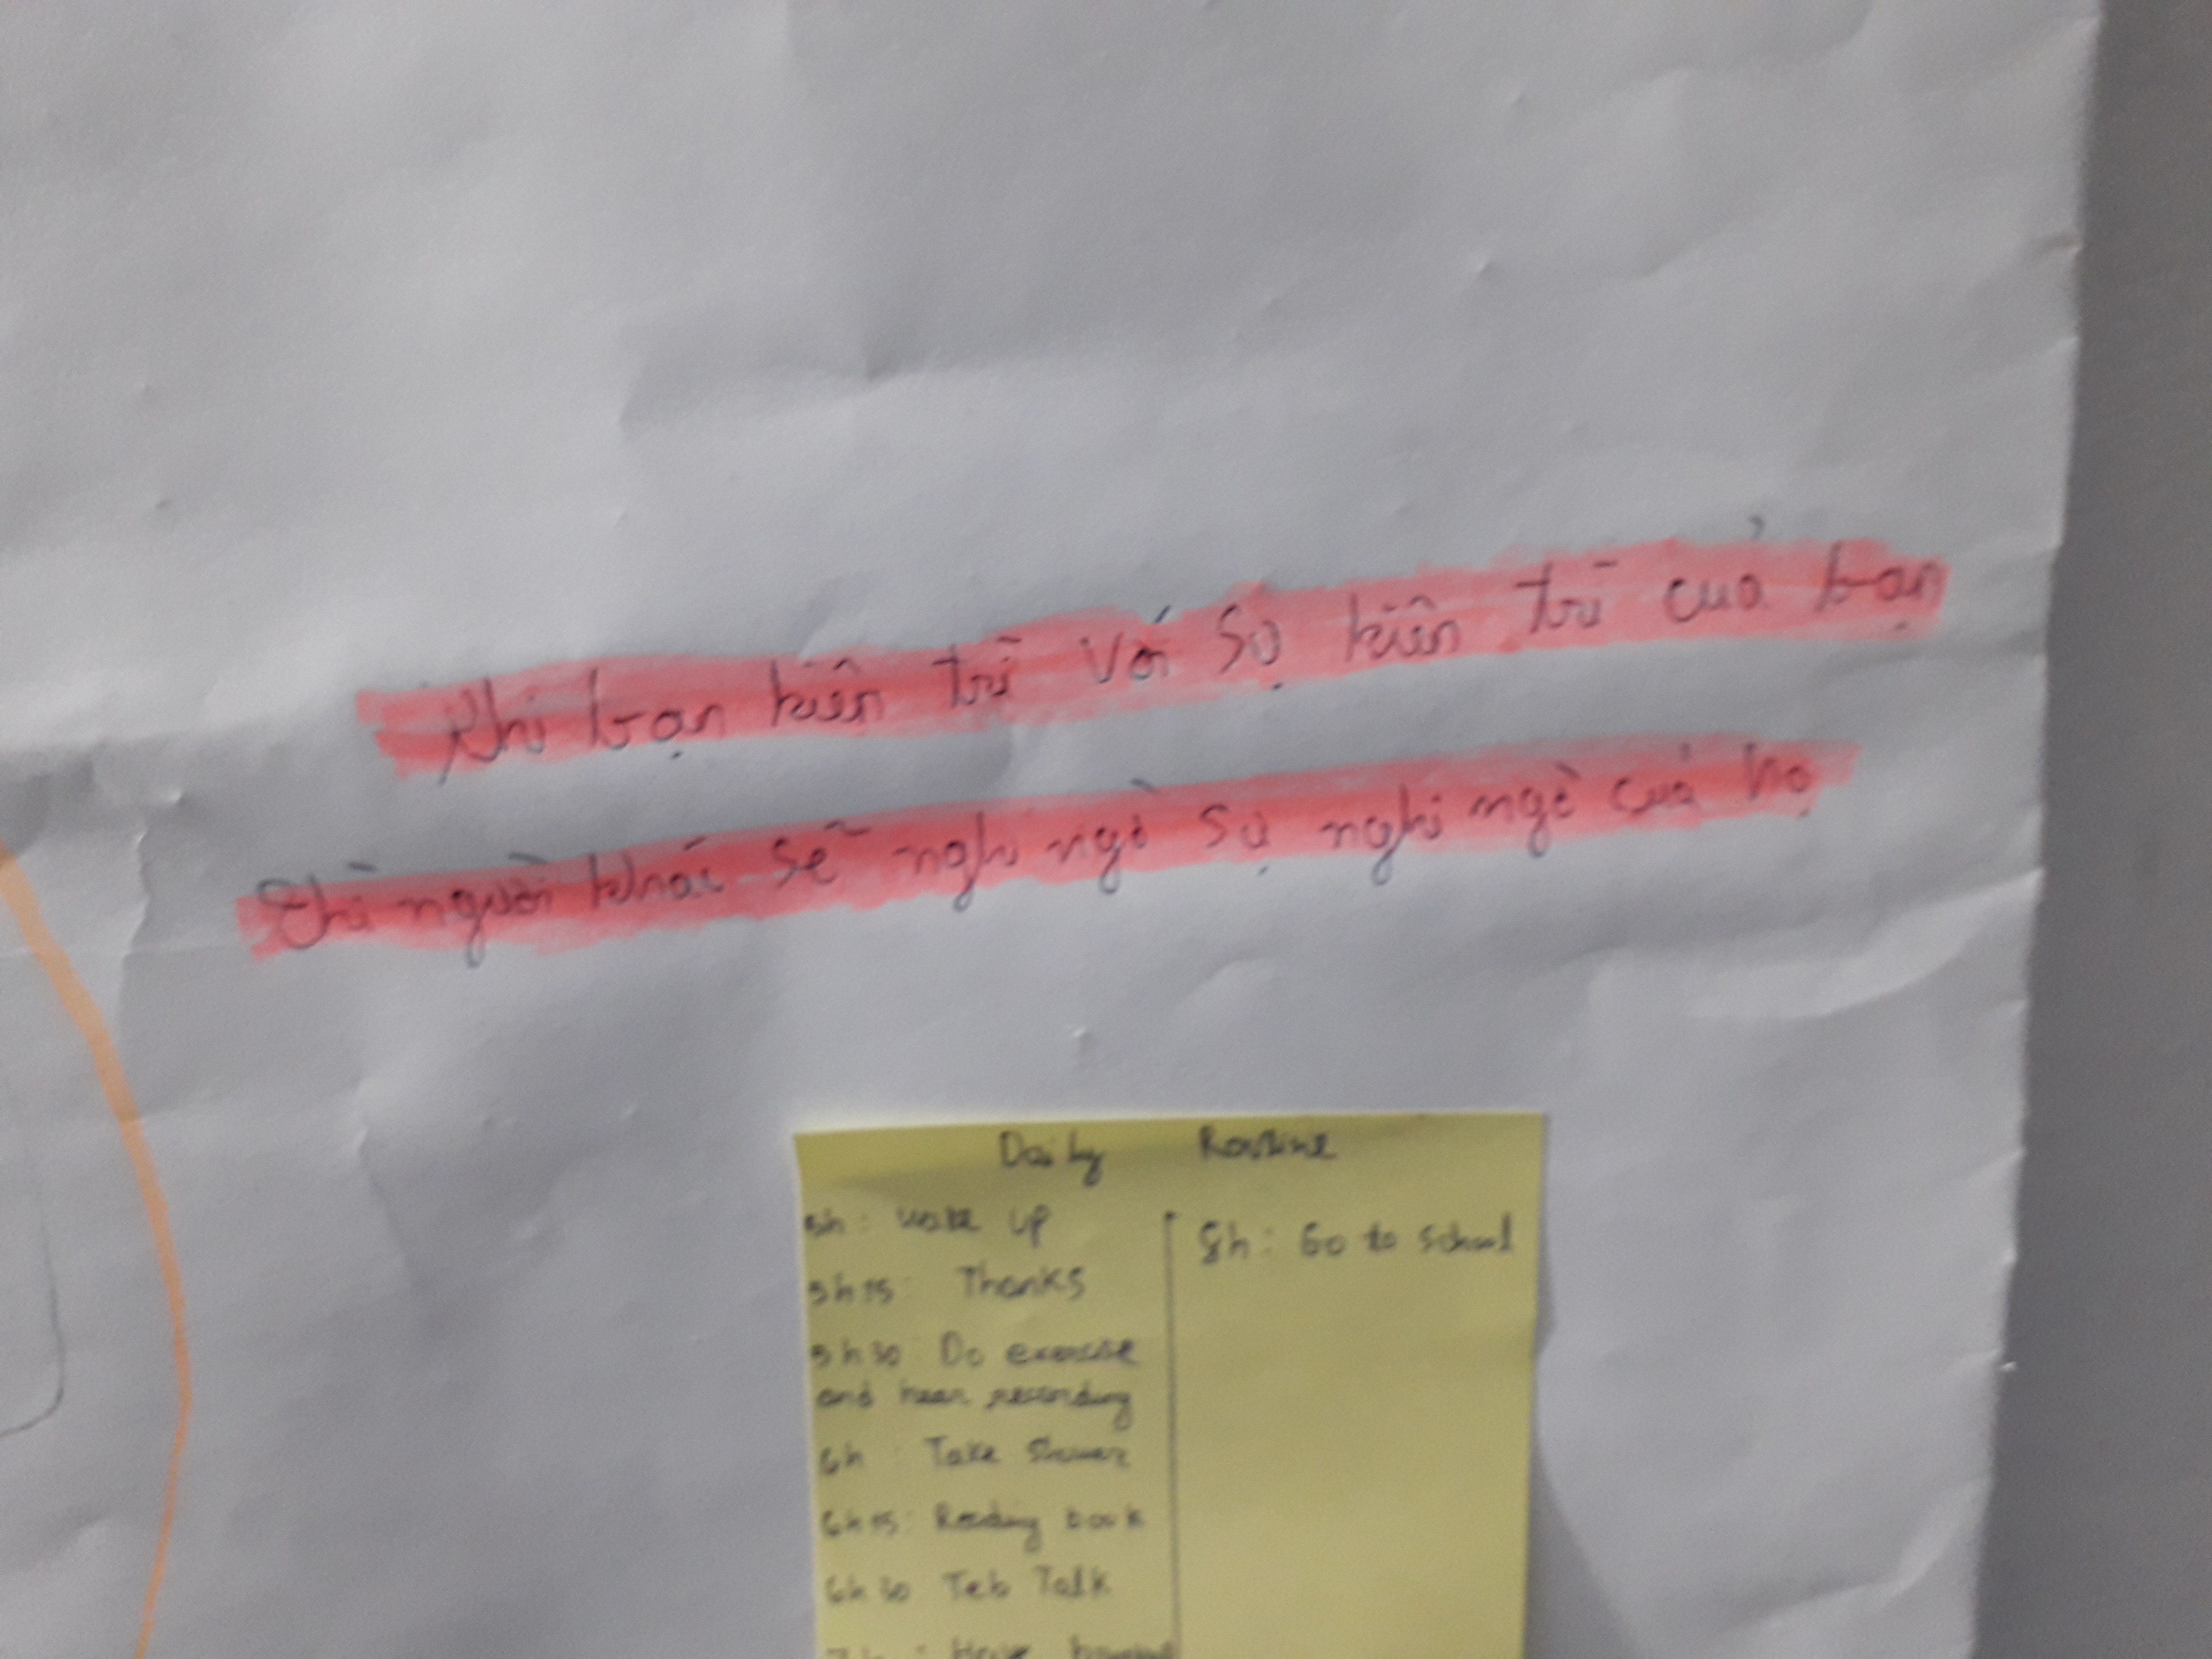 Khi bạn kiên trì với sự kiên trì của bạn
Thì người khác sẽ nghi ngờ sự nghi ngờ của họ
Daily Routine
5h: Wake up
5h15: Thanks
5h30 Do exercise
and hear recording
6h: Take Shower
6h15: Reading book
6h30 Teb Talk
Have
8h: Go to school